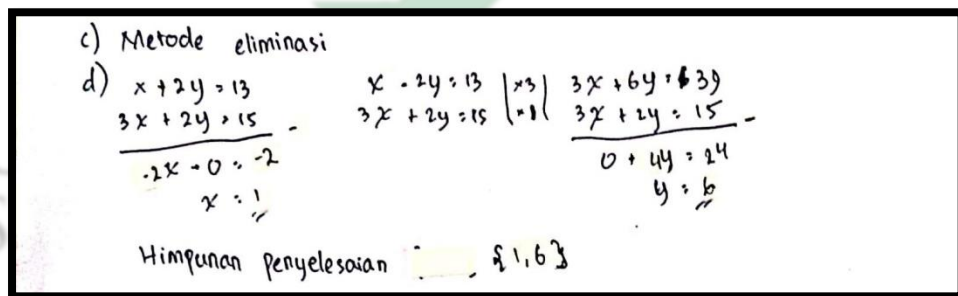 c) Metode eliminasi
d) x + 2y = 13
3x + 2y = 15 -
-2x - 0 = -2
x = 1
x - 2y = 13 | x3 | 3x + 6y = 39
3x + 2y = 15 | x1 | 3x + 2y = 15 -
0 + 4y = 24
y = 6
Himpunan penyelesaian : {1,6}